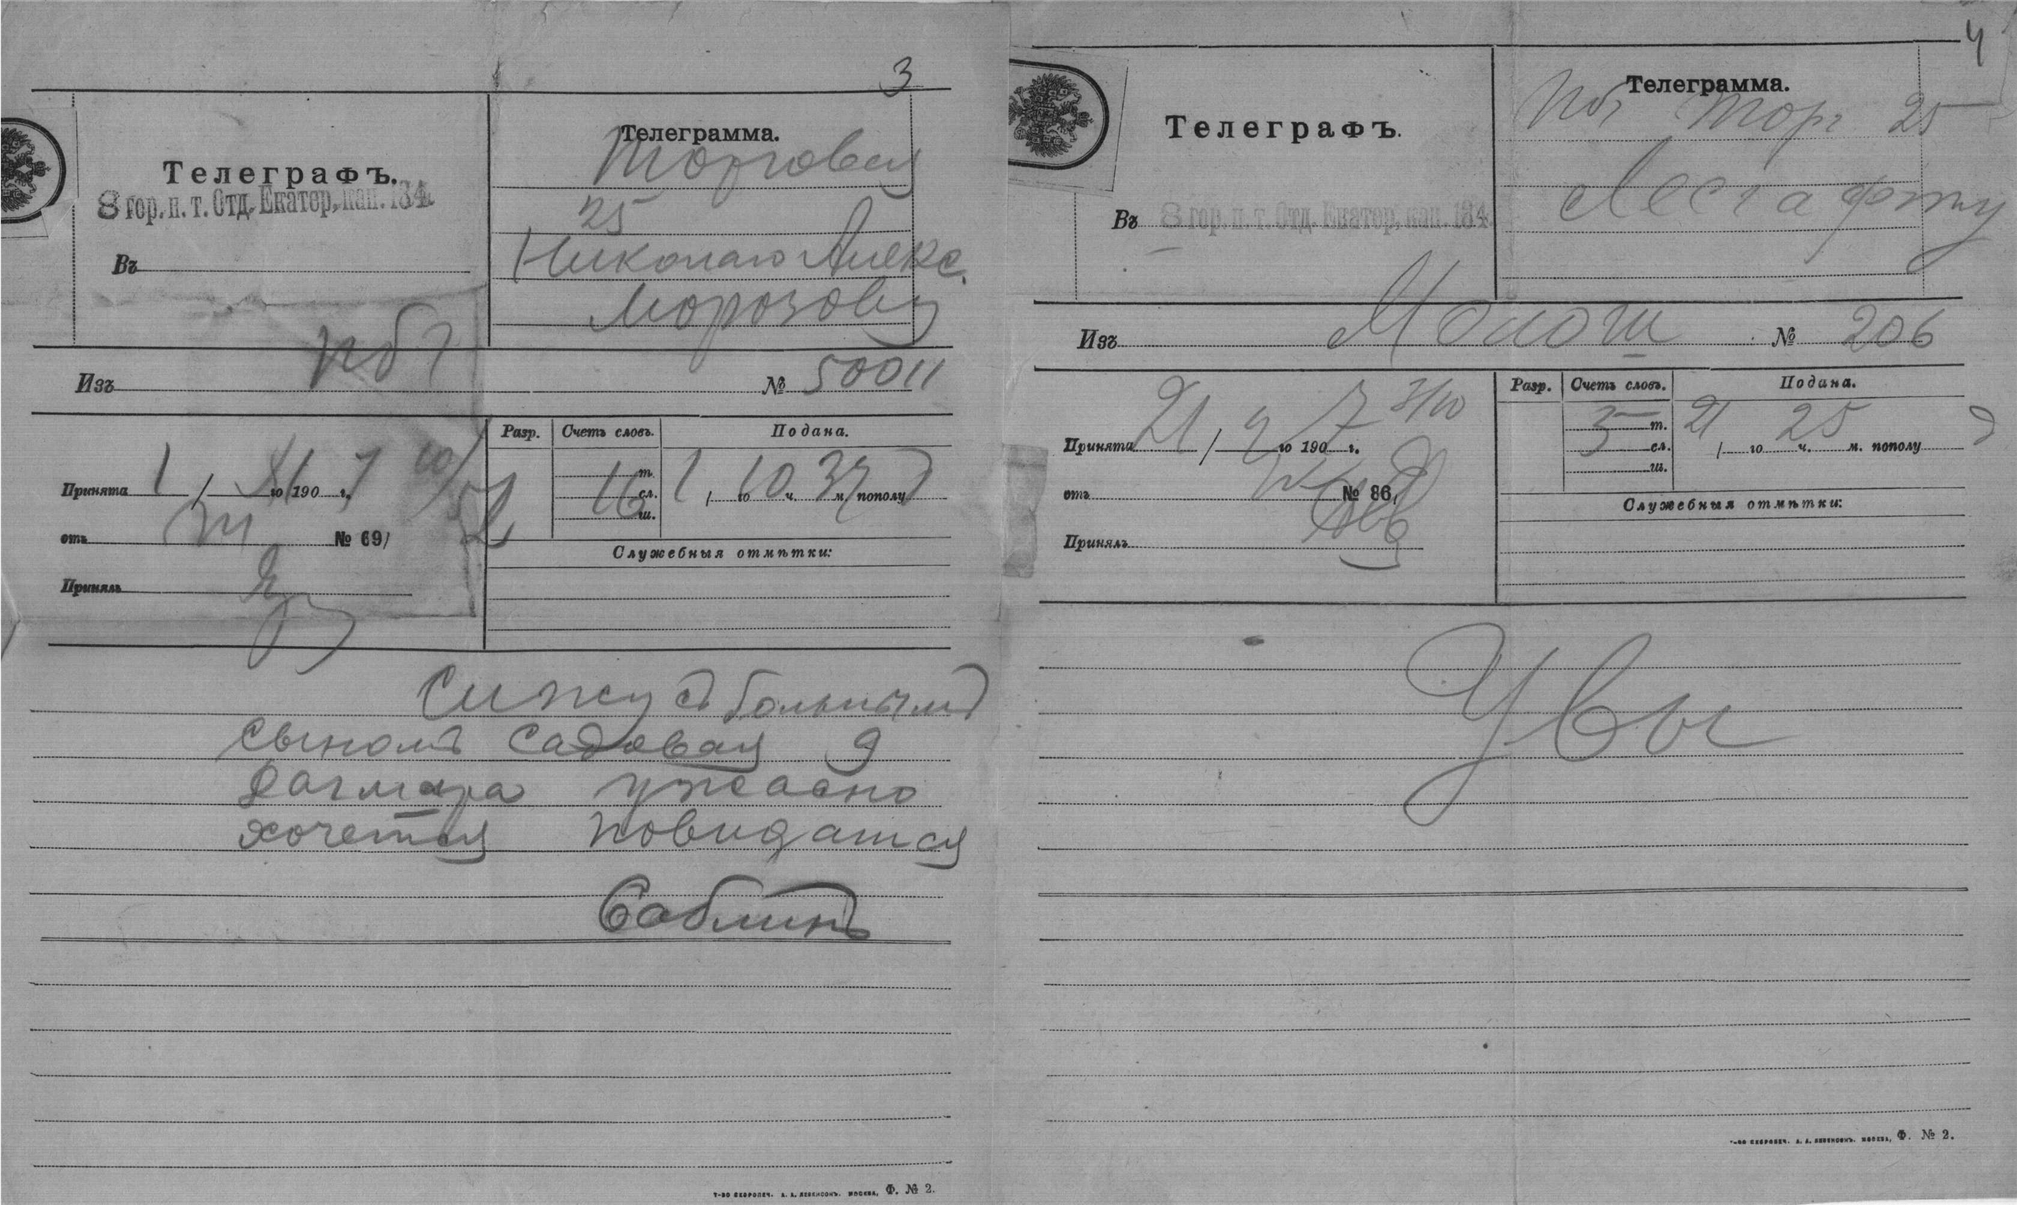 3
Телеграфъ.
8 гор. п. т. Отд. Екатер. кан. 134.
Въ
Телеграмма.
Торговая
25
Николаю Алекс.
Морозову
Изъ Пбг № 50011
Принята 1 / XI го 190 7 г. 10/52
отъ № 69/
Принялъ
Разр. Счетъ словъ. Подана.
т.
16 сл.
ш.
1 / го 10 ч. 37 м. пополу д
Служебныя отмѣтки:
Сижу съ больнымъ
сыномъ Садовая 9
Дагмара ужасно
хочется повидаться
Саблинъ
Т-во скоропеч. А. А. Левенсонъ. Москва, Ф. № 2.
4
Телеграфъ.
Въ 8 гор. п. т. Отд. Екатер. кан. 134.
Телеграмма.
Пбг Торг 25
Лесгафту
Изъ Молош № 206
Принята 21 / 9 го 190 7 г. 3/10
отъ № 86,
Принялъ
Разр. Счетъ словъ. Подана.
т.
5 сл.
ш.
21 / го 25 ч. м. пополу д
Служебныя отмѣтки:
Увы
Т-во скоропеч. А. А. Левенсонъ. Москва, Ф. № 2.